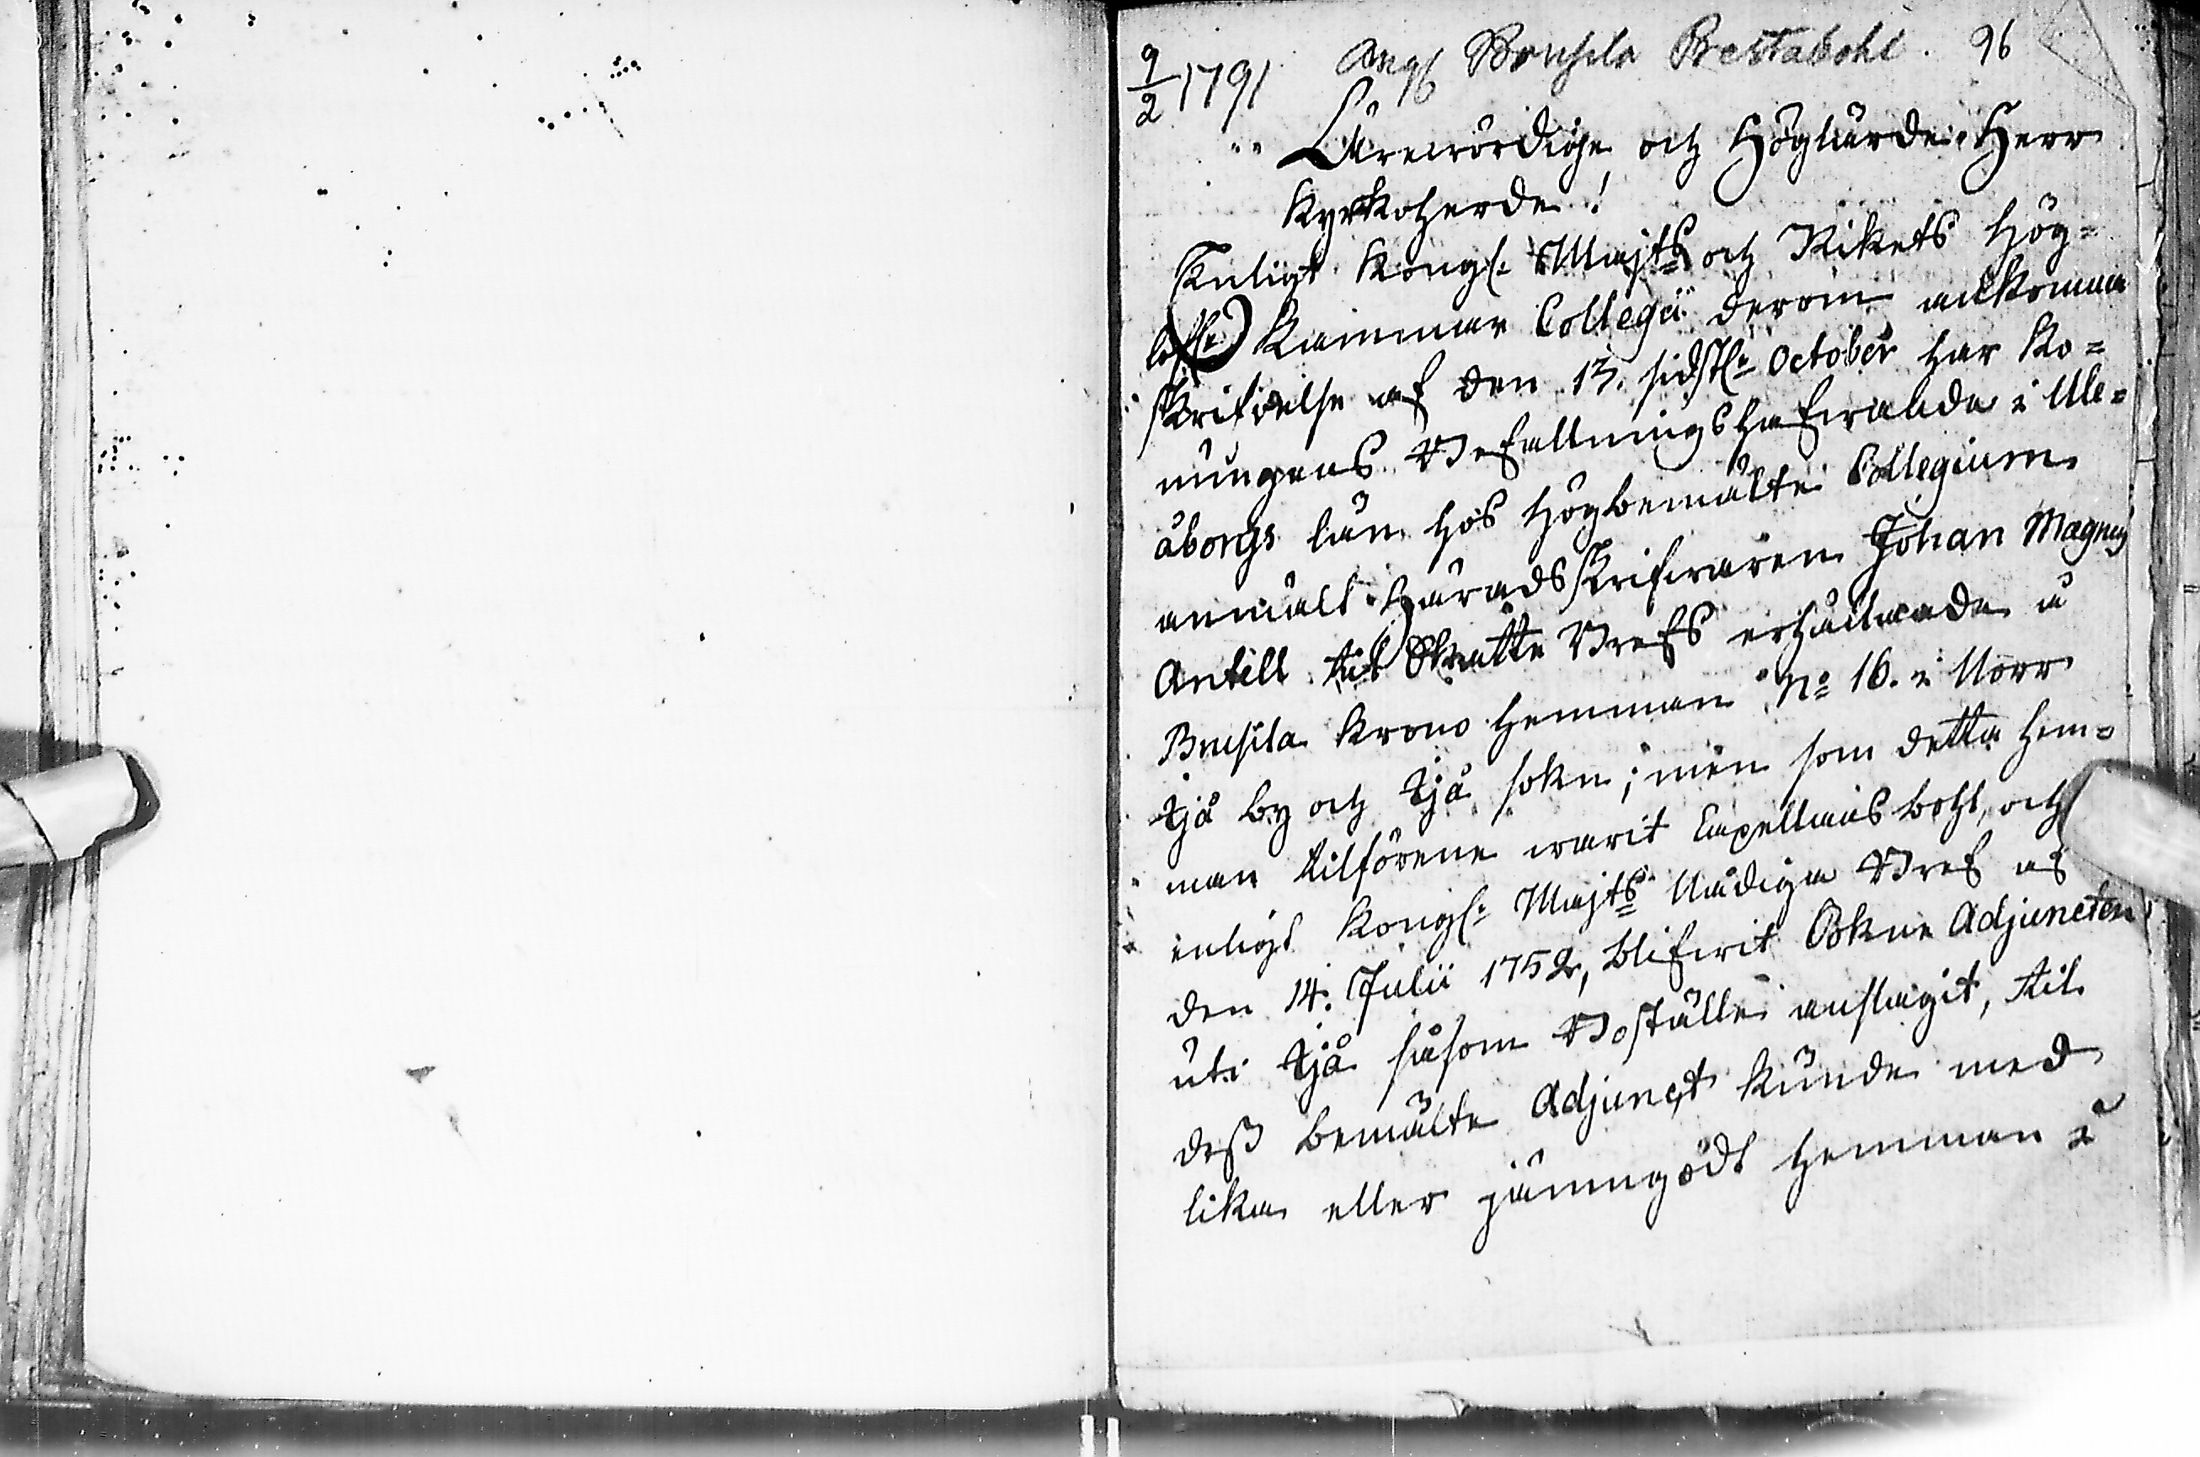 9/2 1791 Ang. Brusila Prestabohl. 96
Ärewördige och Höglärde Herr
Kyrkoherde!
Enligt Kongl. Majts och Rikets Hög-
lofl. Kammar Collegii derom ankomna
skrifvelse af den 13. sidstl. October har Ko-
nungens Befallningshafwande i Ule-
åborgs län hos Högbemälte Collegium
anmält Häradsskrifwaren Johan Magnus
Antell til Skatte Brefs erhållande å
Brusila Krono Hemman No 16. i Norr
Ijå by och Ijå sokn; men som detta Hem-
man tilförene warit Capellans bohl, och
enligt Kongl. Majts Nådiga Bref af
den 14. Julii 1752, blifwit Sokne Adjuncten
uti Ijå såsom Boställe anslagit, til
dess bemälte Adjunct kunde med
lika eller jämngodt Hemman i